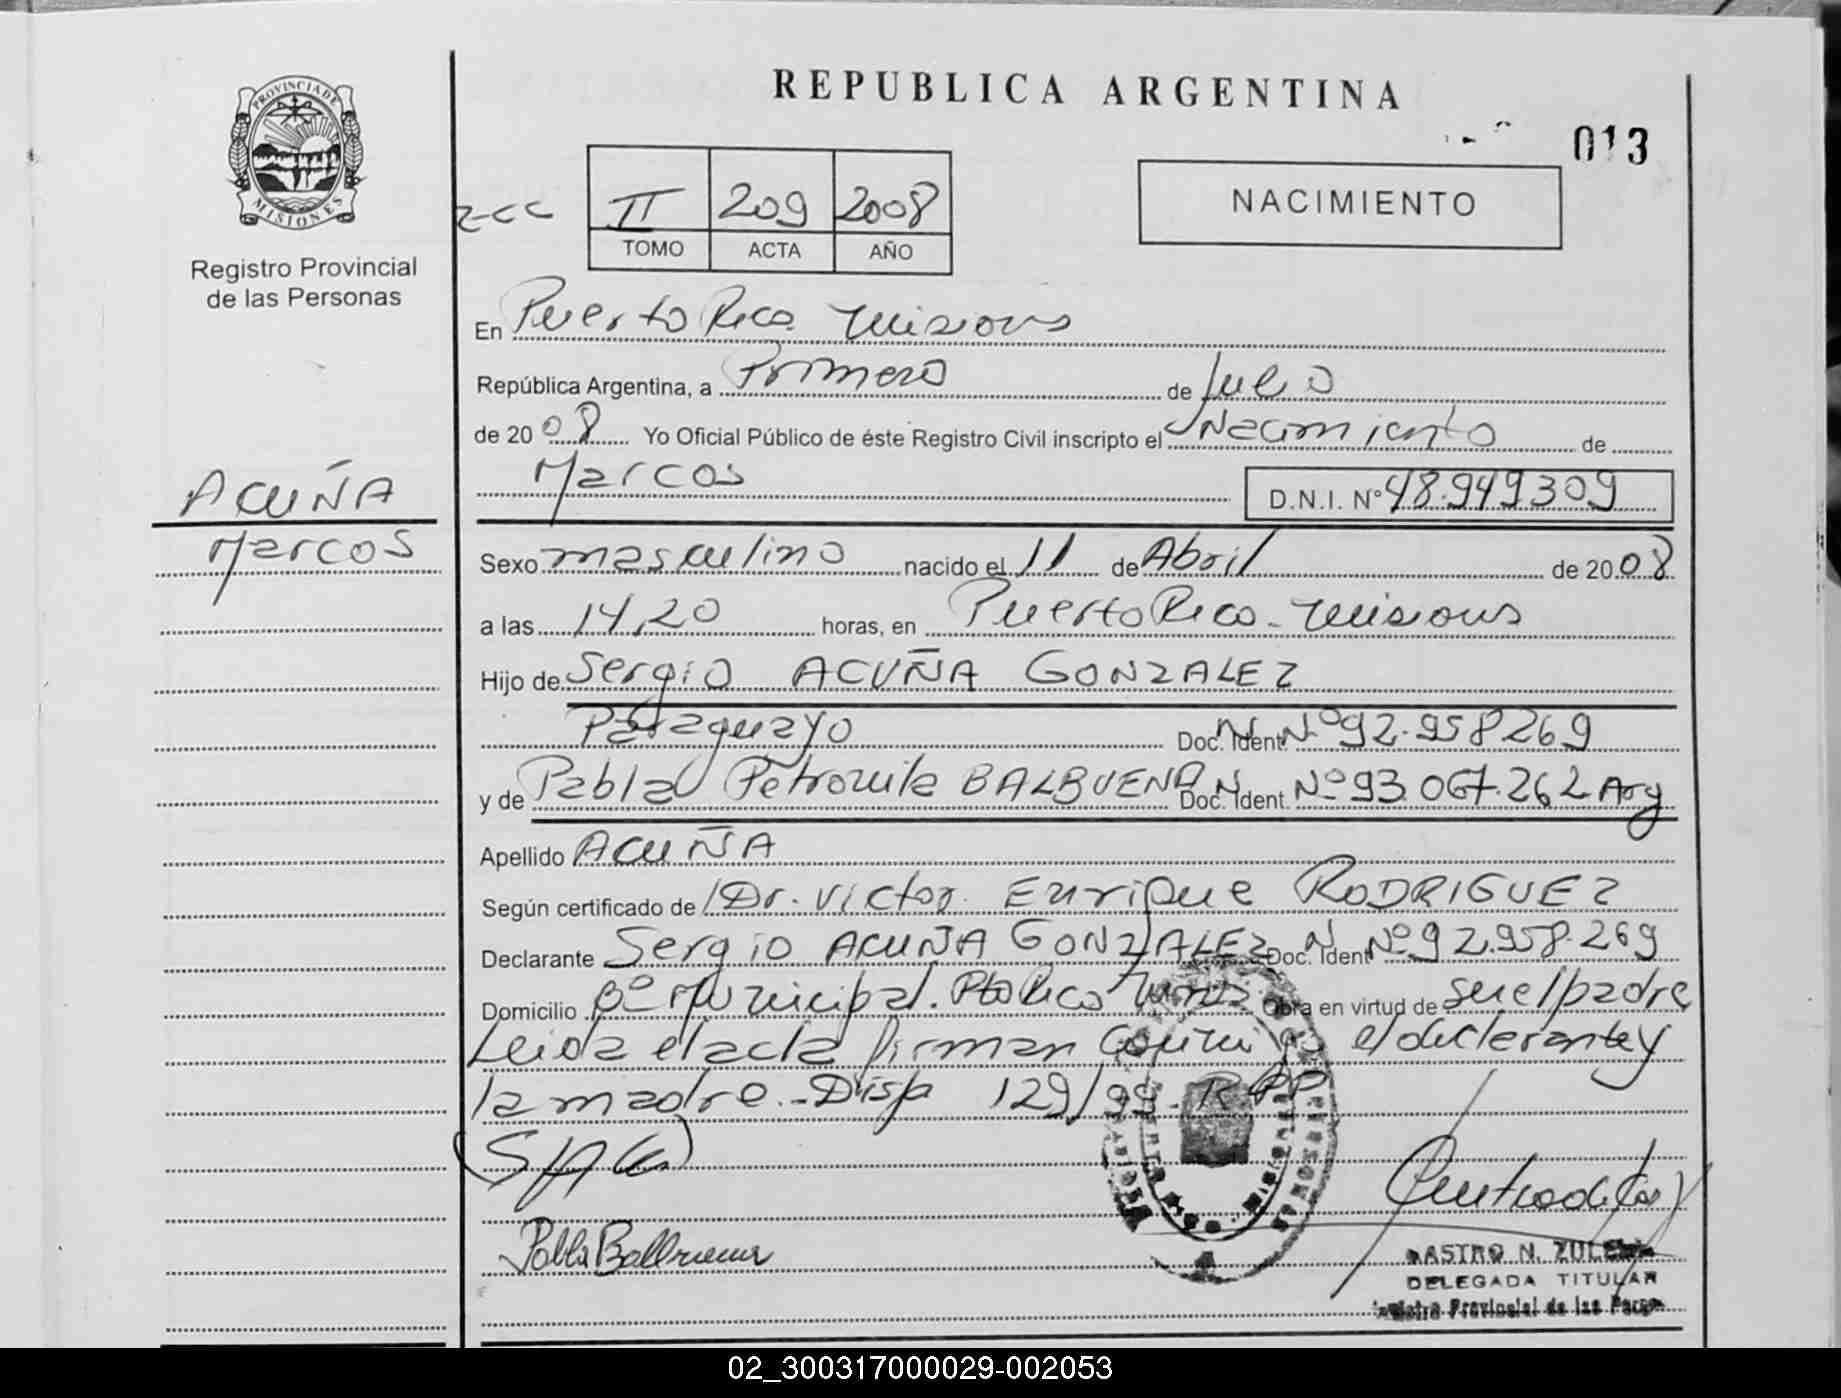 REPUBLICA ARGENTINA
013
PROVINCIA DE
MISIONES
Registro Provincial
de las Personas
II 209 2008
TOMO ACTA AÑO
NACIMIENTO
En Puerto Rico Misiones
República Argentina, a Primero de Julio
de 2008 Yo Oficial Público de éste Registro Civil inscripto el Nacimiento de
Marcos D.N.I. Nº 48.949309
ACUÑA
Marcos
Sexo masculino nacido el 11 de Abril de 2008
a las 14,20 horas, en Puerto Rico - Misiones
Hijo de Sergio ACUÑA GONZALEZ
Paraguayo Doc. Ident. N Nº 92.958269
y de Pabla Petronila BALBUENA Doc. Ident. N Nº 93.067.262 Arg
Apellido ACUÑA
Según certificado de Dr. Victor Enrique RODRIGUEZ
Declarante Sergio ACUÑA GONZALEZ Doc. Ident N Nº 92.958.269
Domicilio Bº Municipal. Pto Rico Obra en virtud de ser el padre
Leida el acta firman el declarante y
la madre.- Disp 129/99. RPP
Pabla Balbuena
CASTRO N. ZULEMA
DELEGADA TITULAR
Registro Provincial de las Perso
02_300317000029-002053